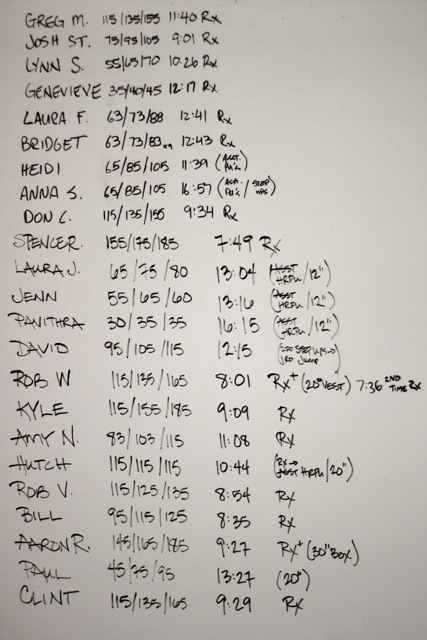 GREG M. 115/135/155 11:40 Rx
JOSH ST. 75/95/105 9:01 Rx
LYNN S. 55/65/70 10:26 Rx
GENEVIEVE 35/40/45 12:17 Rx
LAURA F. 63/73/88 12:41 Rx
BRIDGET 63/73/83 12:43 Rx
HEIDI 65/85/105 11:39 (ASST.
ANNA S. 65/85/105 16:57 (ASST. / STEP UPS)
DON C. 115/135/155 9:34 Rx
SPENCER. 155/175/185 7:49 Rx
LAURA J. 65/75/80 13:04 (ASST HRPU/12")
JENN 55/65/60 13:16 (ASST HRPU/12")
PAVITHRA 30/35/35 16:15 (ASST HRPU/12")
DAVID 95/105/115 12:15 (STEP UPS→ JUMP)
ROB W 115/135/165 8:01 Rx+ (20# VEST) 7:36 2ND TIME Rx
KYLE 115/155/185 9:09 Rx
AMY N. 83/103/115 11:08 Rx
HUTCH 115/115/115 10:44 (Rx→ HRPU/20")
ROB V. 115/125/135 8:54 Rx
BILL 95/115/125 8:35 Rx
AARON R. 145/165/185 9:27 Rx+ (30" BOX)
PAUL 45/75/95 13:27 (20")
CLINT 115/135/165 9:29 Rx